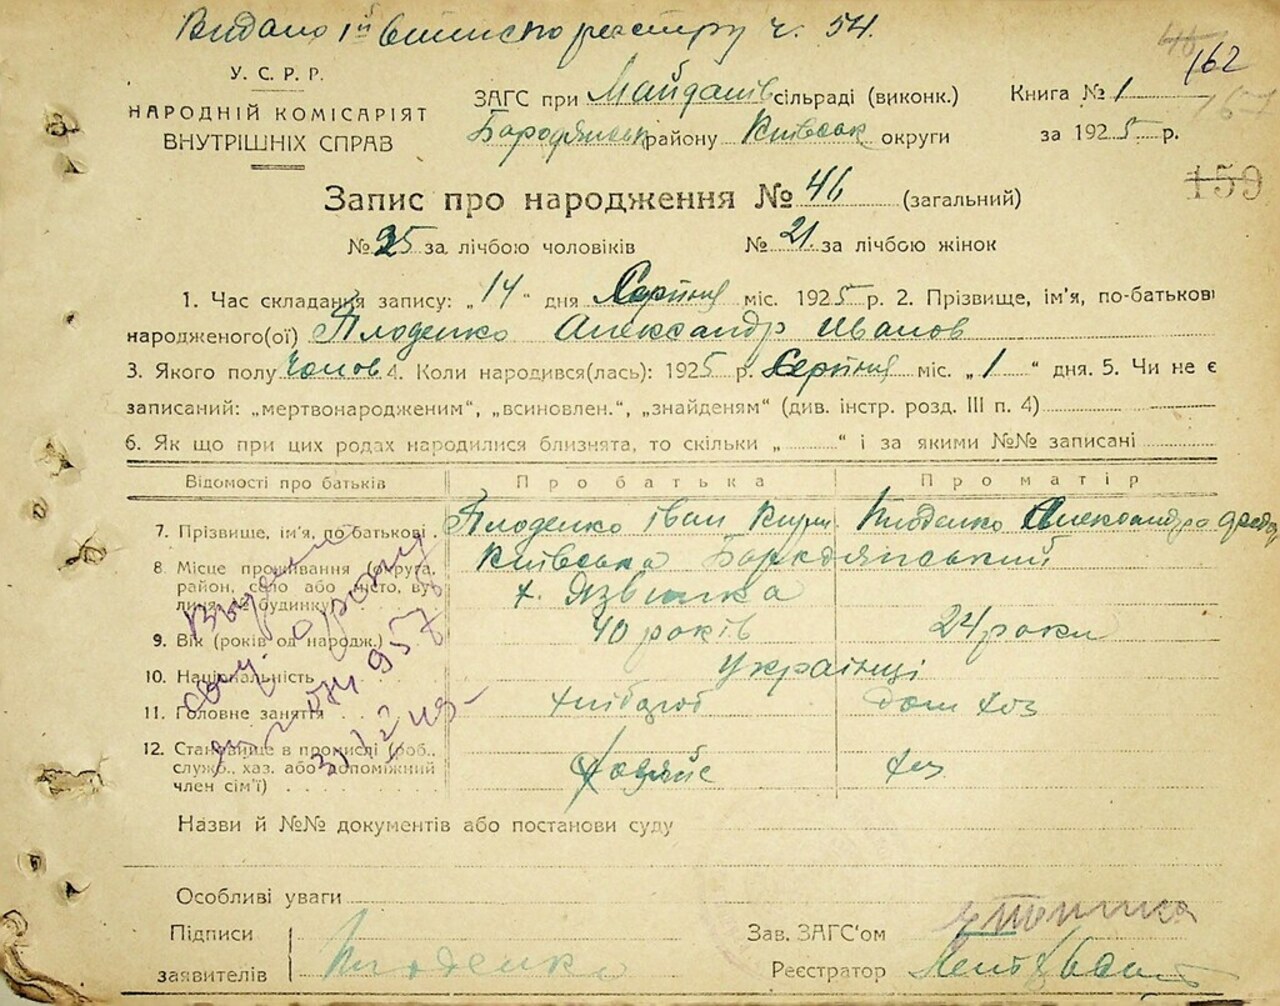 Видано 1й випис по реєстру ч. 54.
162
У. С. Р. Р.
НАРОДНІЙ КОМІСАРІЯТ
ВНУТРІШНІХ СПРАВ
ЗАГС при Майданів сільраді (виконк.)
Бородянськ району Київськ округи
Книга № 1
за 1925 р.
159
Запис про народження № 46 (загальний)
№ 25 за лічбою чоловіків № 21 за лічбою жінок
1. Час складання запису: „14“ дня Серпня міс. 1925 р. 2. Прізвище, ім'я, по-батькові
народженого(ої) Плоденко Александр Иванов
3. Якого полу Чолов 4. Коли народився(лась): 1925 р. Серпня міс. „1“ дня. 5. Чи не є
записаний: „мертвонародженим“, „всиновлен.“, „знайденям“ (див. інстр. розд. III п. 4)
6. Як що при цих родах народилися близнята, то скільки „ “ і за якими №№ записані
Відомості про батьків Про батька Про матір
7. Прізвище, ім'я, по-батькові. Плоденко Іван Плоденко Александра
8. Місце проживання (округа, район, село або місто, вулиця, № будинку) Київська
х. Язвинка
9. Вік (років од народж.) 40 років 24 роки
10. Національність Українці
11. Головне заняття хлібороб Дом хоз
12. Становище в промислі (роб., служб., хаз. або допоміжний член сім'ї) хоз
Назви й №№ документів або постанови суду
Особливі уваги
Підписи
заявителів Плоденко
Зав. ЗАГС'ом
Реєстратор